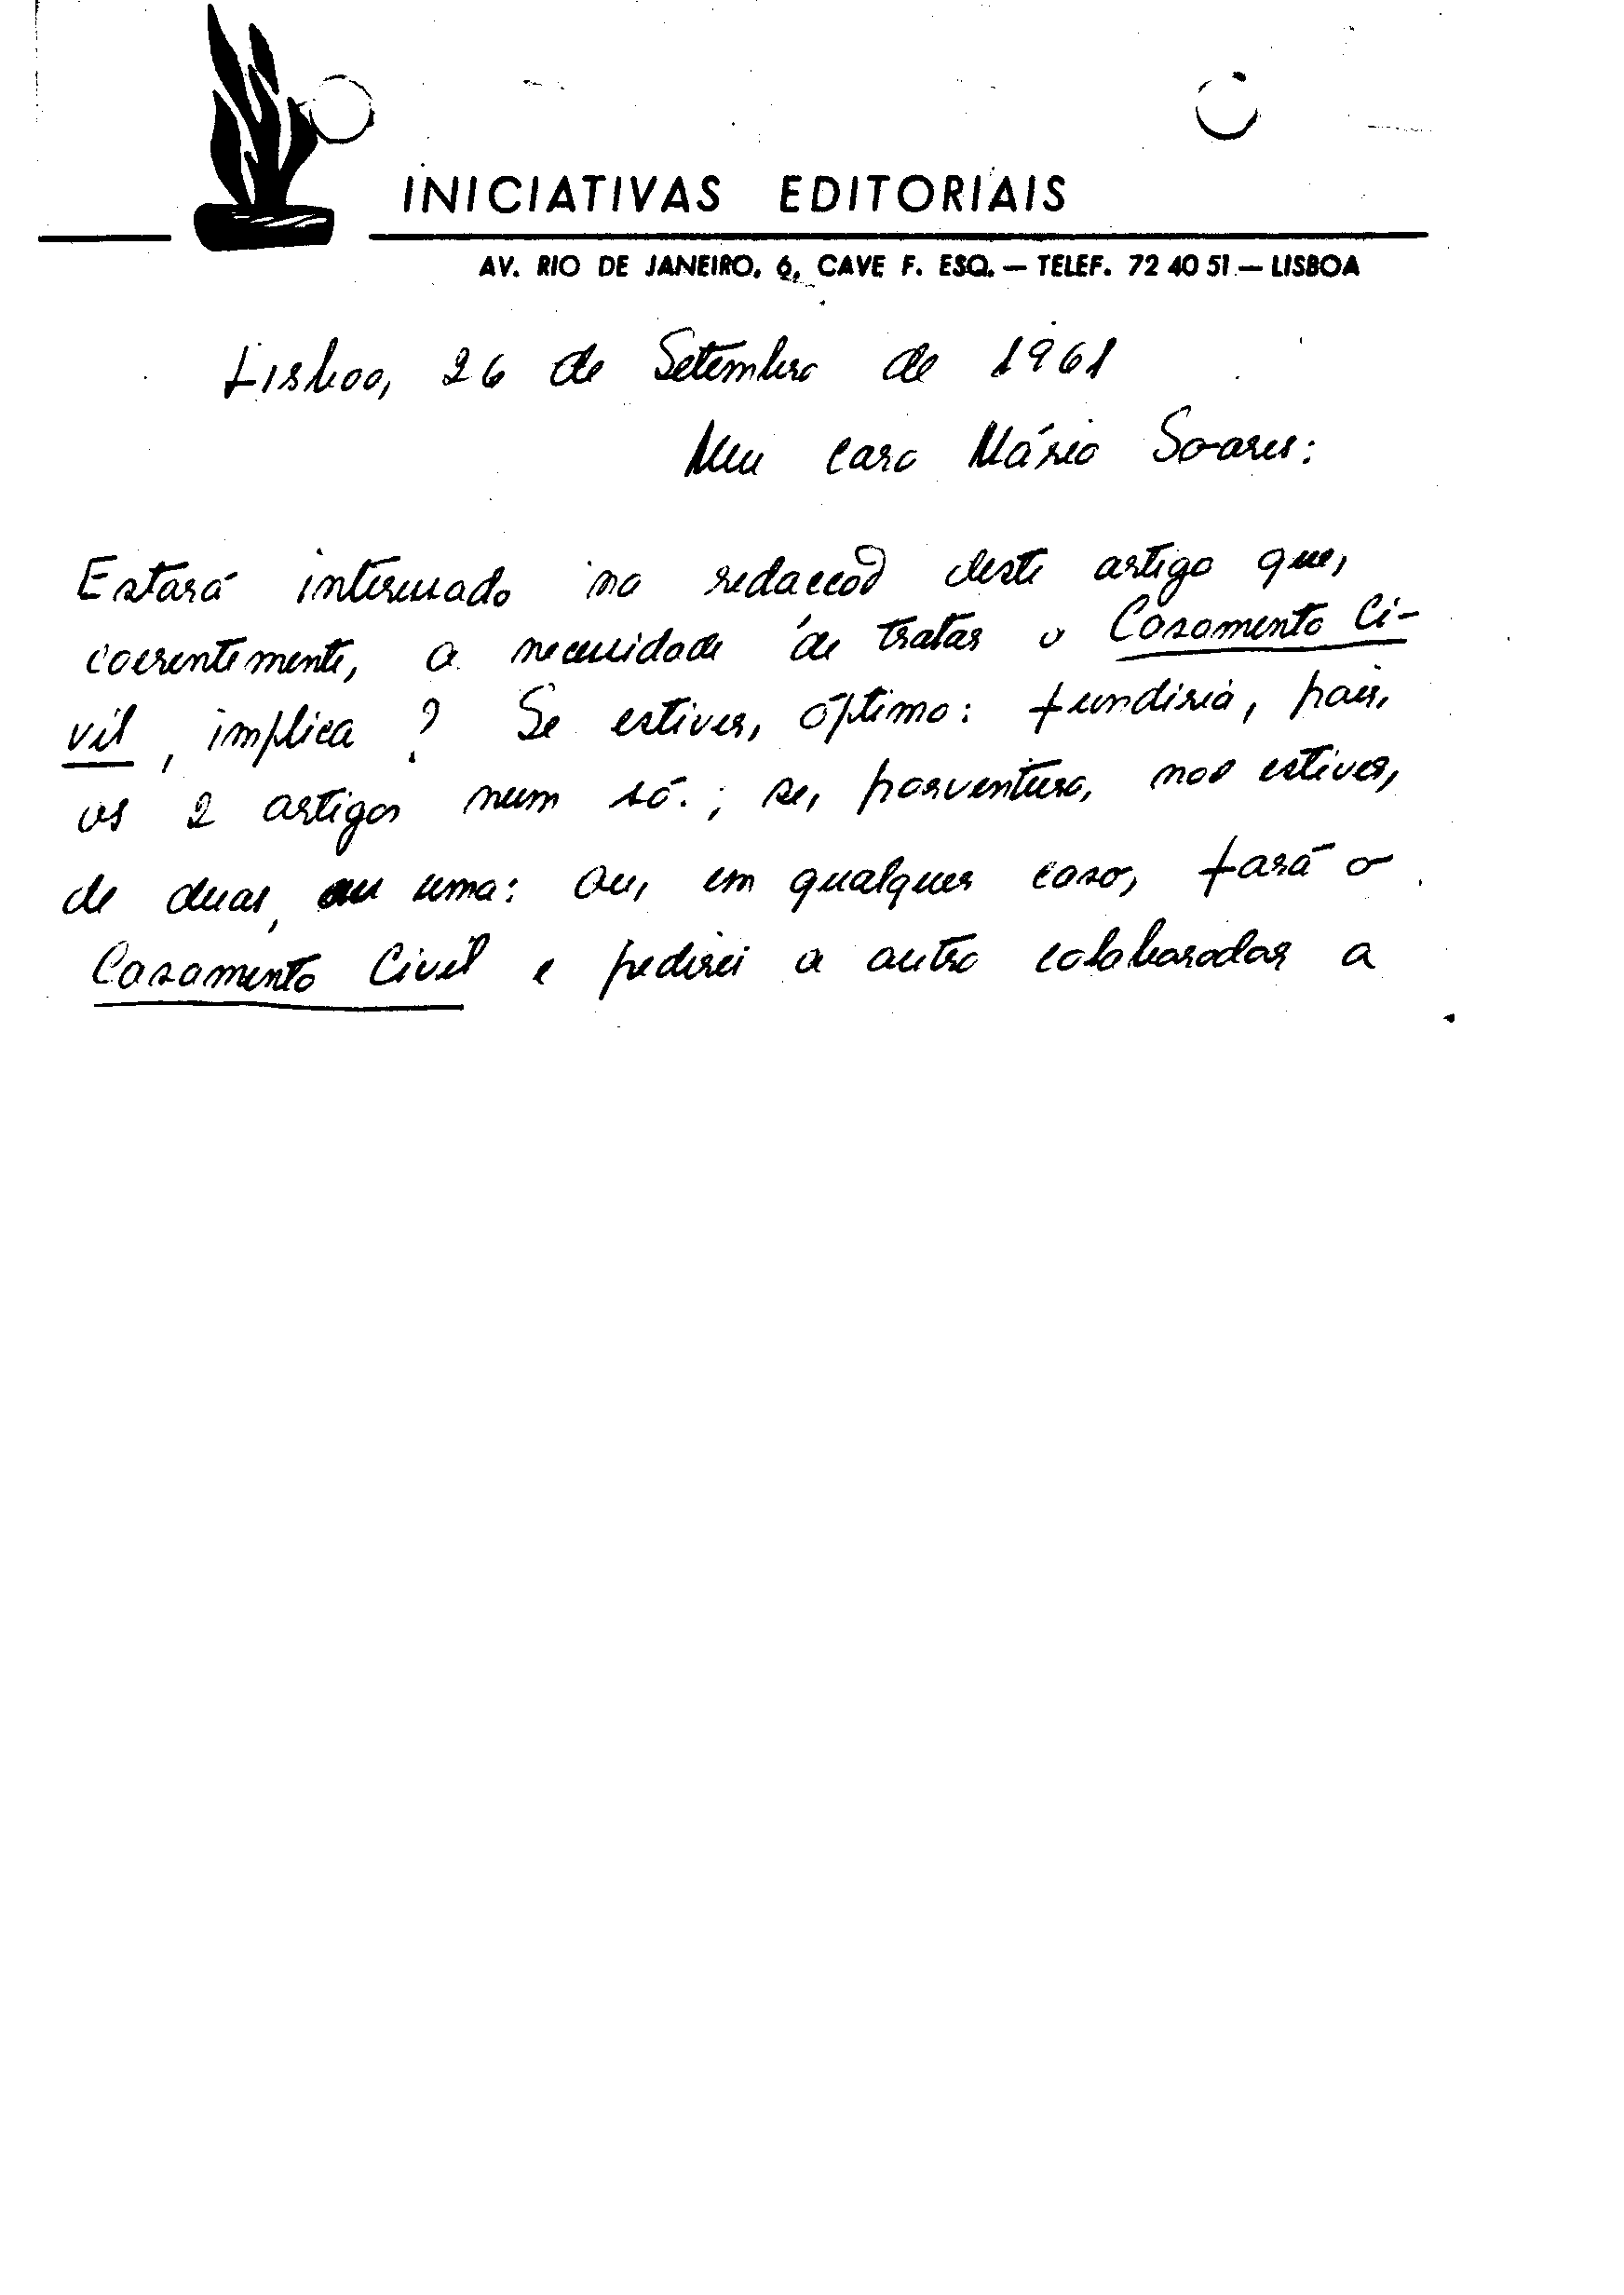 INICIATIVAS EDITORIAIS
AV. RIO DE JANEIRO, 6, CAVE F. ESQ. — TELEF. 72 40 51 — LISBOA
Lisboa, 26 de Setembro de 1961
Meu caro Mário Soares:
Estará interessado na redacção deste artigo que,
coerentemente, a necessidade de tratar o Casamento Ci-
vil, implica? Se estiver, óptimo: fundiria, pois,
os 2 artigos num só.; se, porventura, não estiver,
de duas, uma: ou, em qualquer caso, fará o
Casamento Civil e pedirei a outro colaborador a